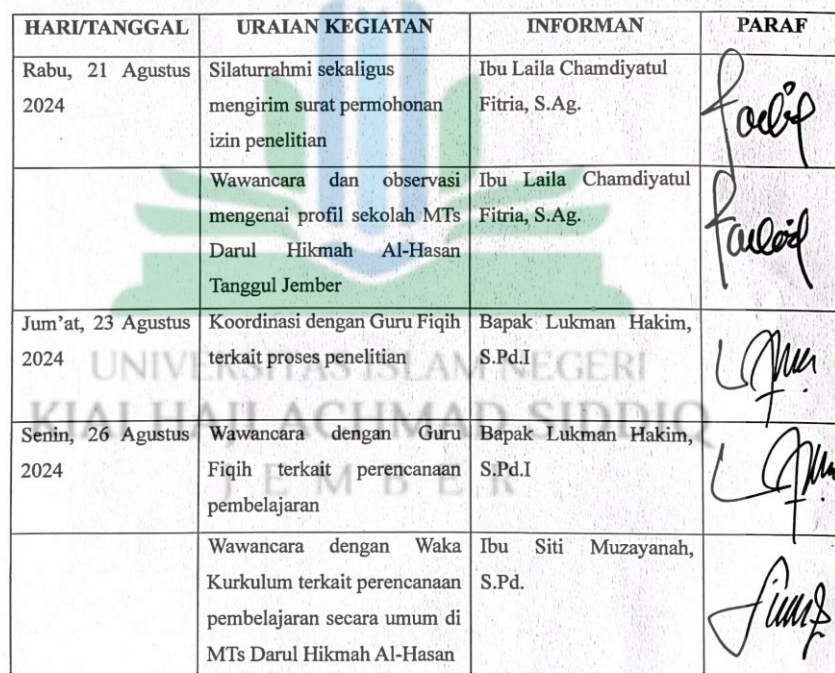 HARI/TANGGAL URAIAN KEGIATAN INFORMAN PARAF
Rabu, 21 Agustus
2024
Silaturrahmi sekaligus
mengirim surat permohonan
izin penelitian
Ibu Laila Chamdiyatul
Fitria, S.Ag.
Wawancara dan observasi
mengenai profil sekolah MTs
Darul Hikmah Al-Hasan
Tanggul Jember
Ibu Laila Chamdiyatul
Fitria, S.Ag.
Jum'at, 23 Agustus
2024
Koordinasi dengan Guru Fiqih
terkait proses penelitian
Bapak Lukman Hakim,
S.Pd.I
Senin, 26 Agustus
2024
Wawancara dengan Guru
Fiqih terkait perencanaan
pembelajaran
Bapak Lukman Hakim,
S.Pd.I
Wawancara dengan Waka
Kurkulum terkait perencanaan
pembelajaran secara umum di
MTs Darul Hikmah Al-Hasan
Ibu Siti Muzayanah,
S.Pd.
UNIVERSITAS ISLAM NEGERI
KIAI HAJI ACHMAD SIDDIQ
JEMBER